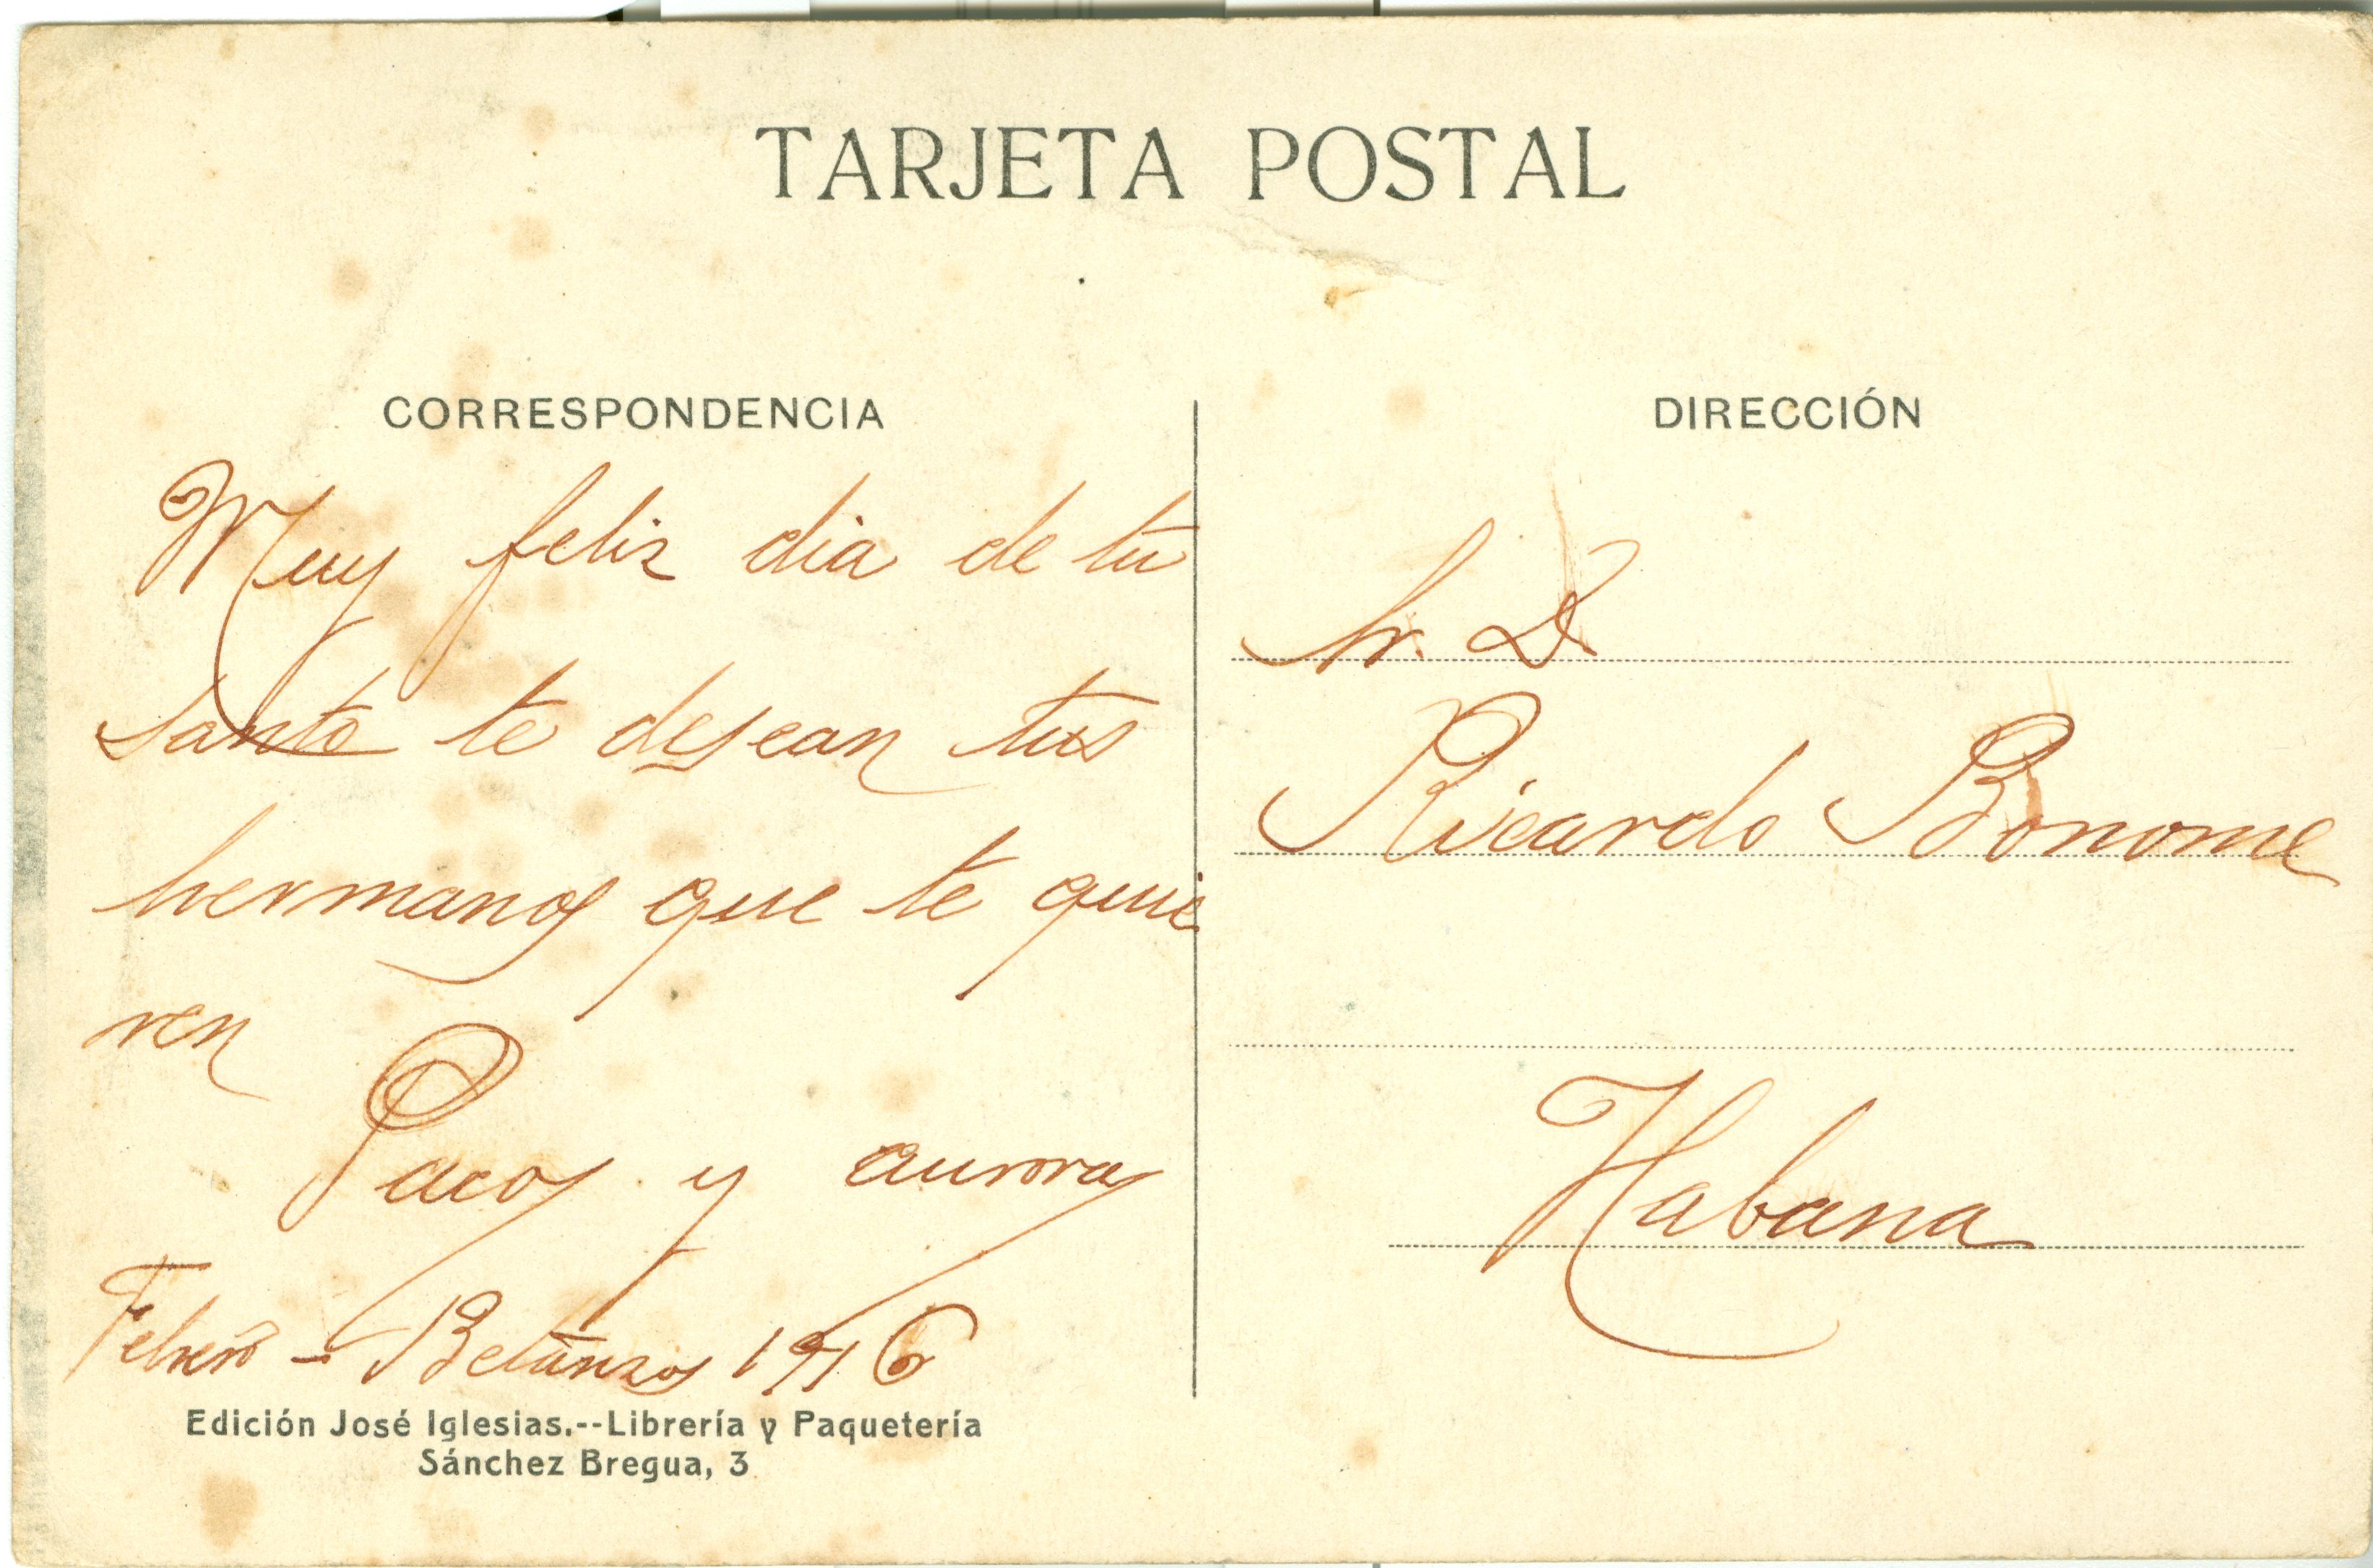 TARJETA POSTAL
CORRESPONDENCIA
Muy feliz dia de tu
santo te desean tus
hermanos que te quie
ren
Pacos y aurora
Febrero - Betanzos 1916
Edición José Iglesias.--Librería y Paquetería
Sánchez Bregua, 3
DIRECCIÓN
Sr. D.
Ricardo Bonome
Habana